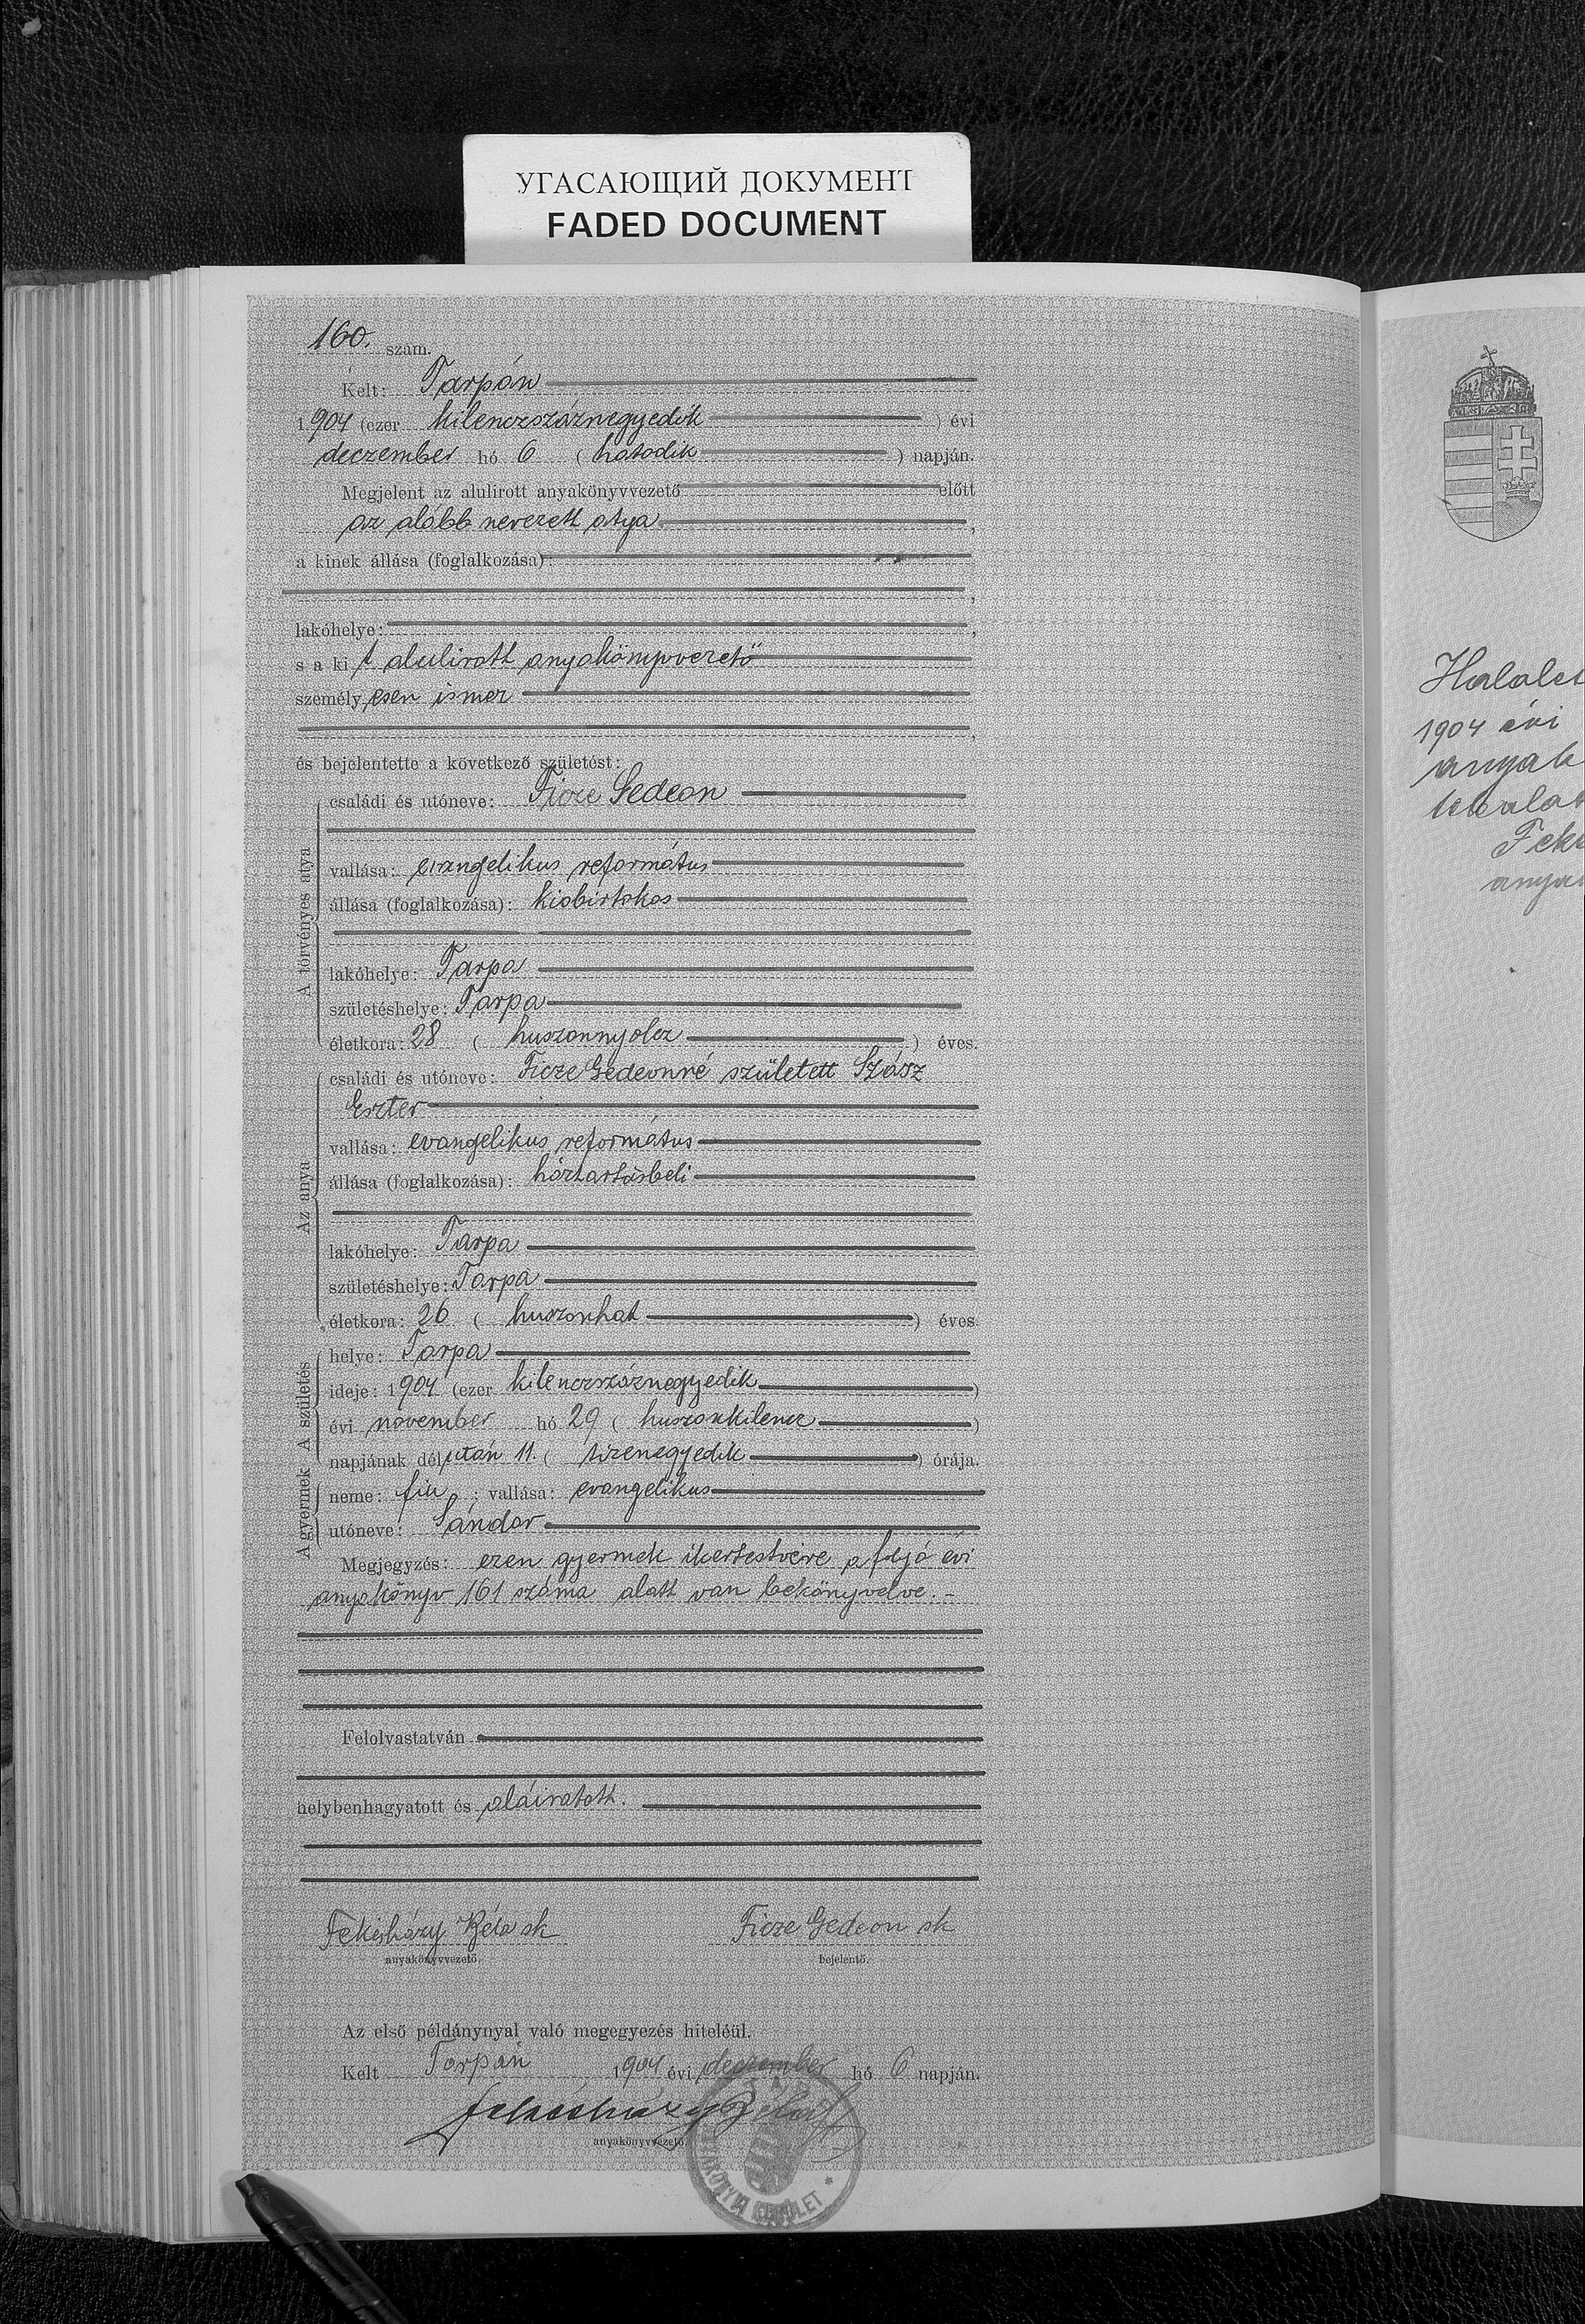 УГАСАЮЩИЙ ДОКУМЕНТ
FADED DOCUMENT
160. szám.
Kelt: Tarpán
1904 (ezer kilenczszáznegyedik ) évi
deczember hó 6 ( hatodik ) napján.
Megjelent az alulirott anyakönyvvezető előtt
az alább nevezett atya ,
a kinek állása (foglalkozása):
,
lakóhelye: ,
s a ki t alulirott anyakönyvvezető
személyesen ismer
,
és bejelentette a következő születést:
A törvényes atya
családi és utóneve: Ficze Gedeon
vallása: evangelikus református
állása (foglalkozása): kisbirtokos
lakóhelye: Tarpa
születéshelye: Tarpa
életkora: 28 ( huszonnyolcz ) éves.
Az anya
családi és utóneve: Ficze Gedeonné született Szász
Eszter
vallása: evangelikus református
állása (foglalkozása): háztartásbeli
lakóhelye: Tarpa
születéshelye: Tarpa
életkora: 26 ( huszonhat ) éves.
A születés
helye: Tarpa
ideje: 1904 (ezer kilenczszáznegyedik )
évi november hó 29 ( huszonkilencz )
napjának délután 11. ( tizenegyedik ) órája.
A gyermek
neme: fiu ; vallása: evangelikus
utóneve: Sándor
Megjegyzés: ezen gyermek ikertestvére a folyó évi
anyakönyv 161 száma alatt van bekönyvelve. -
Felolvastatván
helybenhagyatott és aláiratott.
Fekésházy Béla sk Ficze Gedeon sk
anyakönyvvezető. bejelentő.
Az első példánynyal való megegyezés hiteléül.
Kelt Tarpán 1904 évi deczember hó 6 napján.
Fekésházy Béla
anyakönyvvezető.
1904 évi